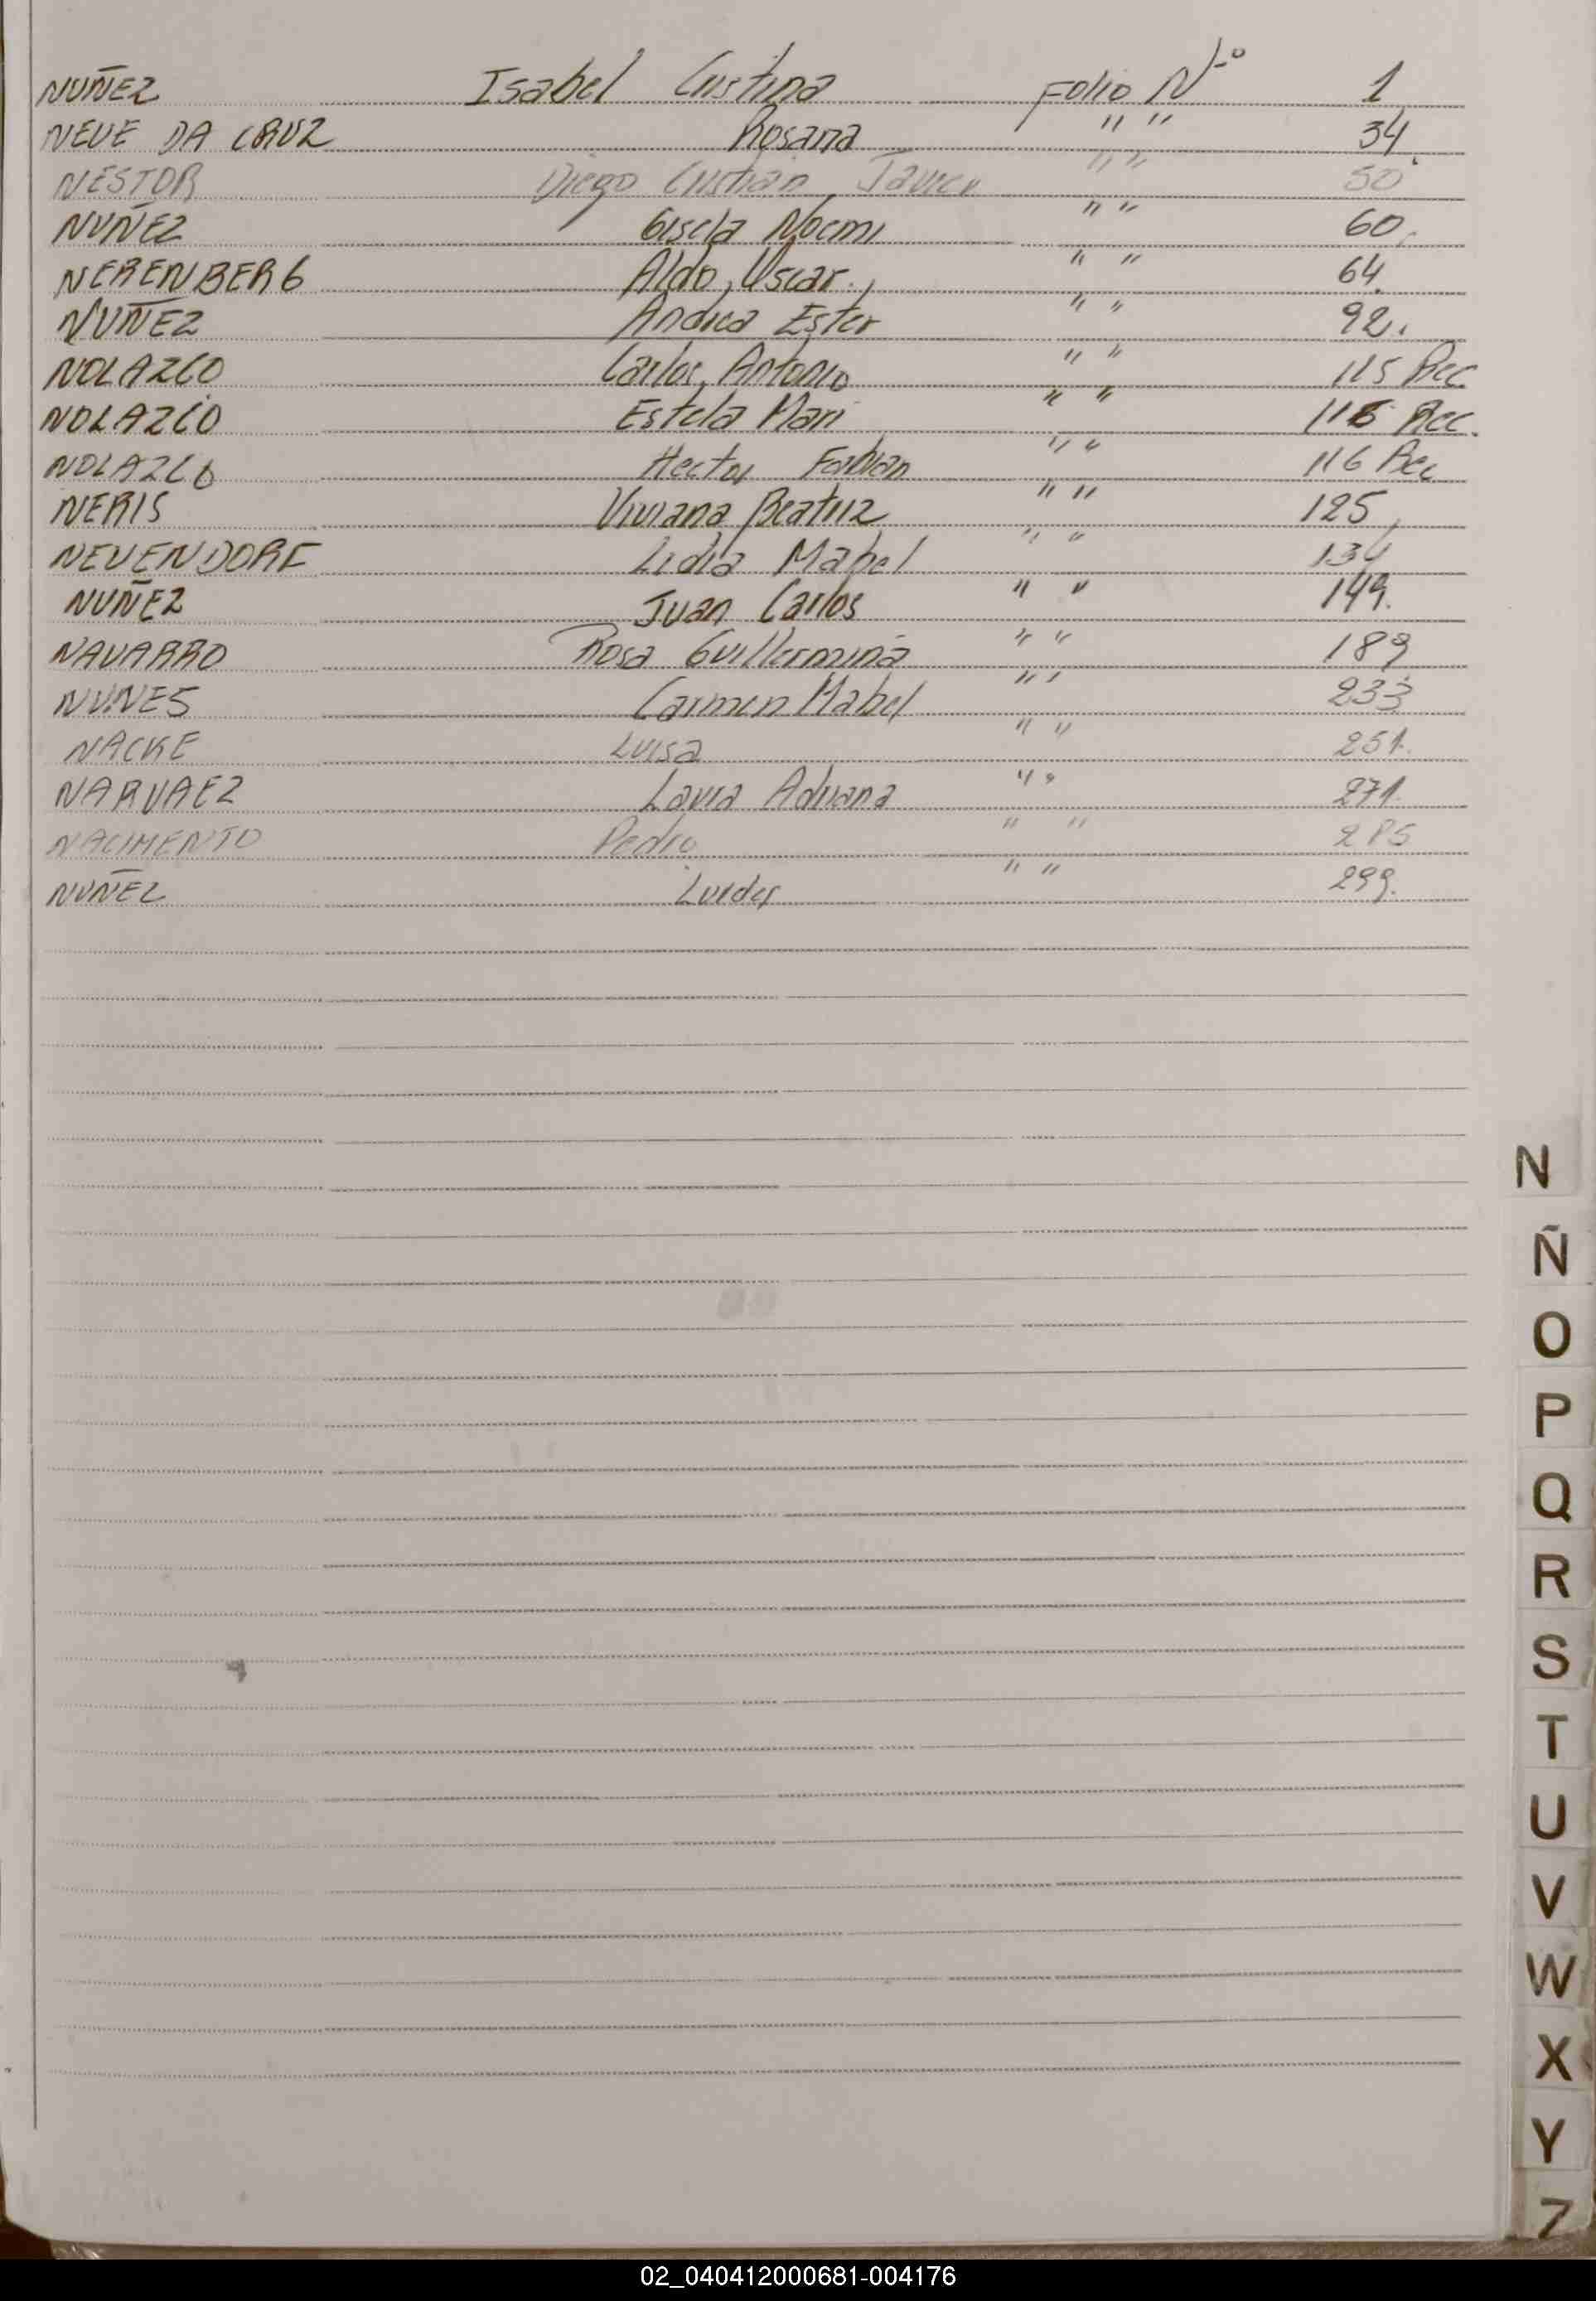 NUÑEZ Isabel Cristina Folio Nº 1
NEUE DA CRUZ Rosana " " 34.
NESTOR Diego Cristian Javier " " 50
NUÑEZ Gisela Noemi " " 60.
NERENBERG Aldo, Oscar., " " 64.
NUÑEZ Andrea Ester " " 92.
NOLAZCO Carlos, Antonio " " 115 Rec
NOLAZCO Estela Mari " " 116 Rec.
NOLAZCO Hector Fabian " " 116 Rec
NERIS Viviana Beatriz " " 125,
NEUENDORF Lidia Mabel " " 134
NUÑEZ Juan Carlos " " 149.
NAVARRO Rosa Guillermina " " 189
NUNES Carmen Mabel " " 233
NACKE Luisa " " 251.
NARVAEZ Laura Adriana " " 271.
NACIMENTO Pedro " " 285
NUÑEZ " " 299.
N
Ñ
O
P
Q
R
S
T
U
V
W
X
Y
Z
02_040412000681-004176